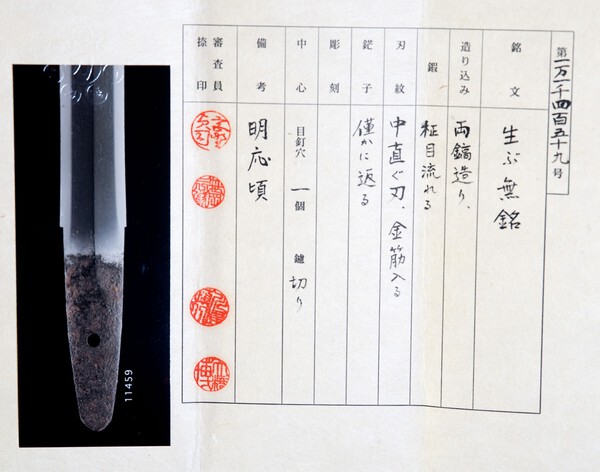 第一万一千四百五十九号
銘文 生ぶ無銘
造り込み 両鎬造り、
鍜 柾目流れる
刃紋 中直ぐ刃、金筋入る
鋩子 僅かに返る
彫刻
中心 目釘穴 一個 鑢 切り
備考 明応頃
審査員
捺印
11459